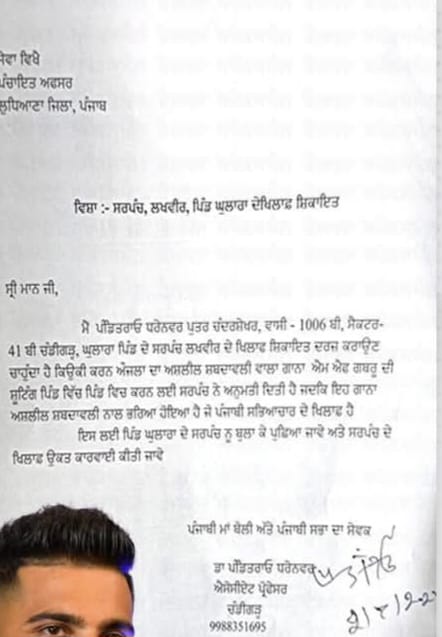 ਸੇਵਾ ਵਿਖੇ
ਪੰਚਾਇਤ ਅਫਸਰ
ਲੁਧਿਆਣਾ ਜਿਲਾ, ਪੰਜਾਬ
ਵਿਸ਼ਾ :- ਸਰਪੰਚ, ਲਖਵੀਰ, ਪਿੰਡ ਘੁਲਾਰਾ ਦੇਖਿਲਾਫ਼ ਸ਼ਿਕਾਇਤ
ਸ੍ਰੀ ਮਾਨ ਜੀ,
ਮੈ ਪੰਡਿਤਰਾਓ ਧਰੇਨਵਰ ਪੁਤਰ ਚੰਦਰਸ਼ੇਖਰ, ਵਾਸੀ - 1006 ਬੀ, ਸੈਕਟਰ-
41 ਬੀ ਚੰਡੀਗੜ੍ਹ, ਘੁਲਾਰਾ ਪਿੰਡ ਦੇ ਸਰਪੰਚ ਲਖਵੀਰ ਦੇ ਖਿਲਾਫ ਸ਼ਿਕਾਇਤ ਦਰਜ਼ ਕਰਾਉਣ
ਚਾਹੁੰਦਾ ਹੈ ਕਿਉਕੀ ਕਰਨ ਔਜਲਾ ਦਾ ਅਸ਼ਲੀਲ ਸ਼ਬਦਾਵਲੀ ਵਾਲਾ ਗਾਨਾ ਐਮ ਐਫ ਗਬਰੂ ਦੀ
ਸ਼ੂਟਿੰਗ ਪਿੰਡ ਵਿੱਚ ਪਿੰਡ ਵਿਚ ਕਰਨ ਲਈ ਸਰਪੰਚ ਨੇ ਅਨੁਮਤੀ ਦਿਤੀ ਹੈ ਜਦਕਿ ਇਹ ਗਾਨਾ
ਅਸ਼ਲੀਲ ਸ਼ਬਦਾਵਲੀ ਨਾਲ ਭਰਿਆ ਹੋਇਆ ਹੈ ਜੋ ਪੰਜਾਬੀ ਸਭਿਆਚਾਰ ਦੇ ਖਿਲਾਫ ਹੈ
ਇਸ ਲਈ ਪਿੰਡ ਘੁਲਾਰਾ ਦੇ ਸਰਪੰਚ ਨੂ ਬੁਲਾ ਕੇ ਪੁਛਿਆ ਜਾਵੇ ਅਤੇ ਸਰਪੰਚ ਦੇ
ਖਿਲਾਫ਼ ਉਕਤ ਕਾਰਵਾਈ ਕੀਤੀ ਜਾਵੇ
ਪੰਜਾਬੀ ਮਾਂ ਬੋਲੀ ਅੱਤੇ ਪੰਜਾਬੀ ਸਭਾ ਦਾ ਸੇਵਕ
ਡਾ ਪੰਡਿਤਰਾਓ ਧਰੇਨਵਰ
ਐਸੋਸੀਏਟ ਪ੍ਰੋਫੇਸਰ
ਚੰਡੀਗੜ੍ਹ
9988351695